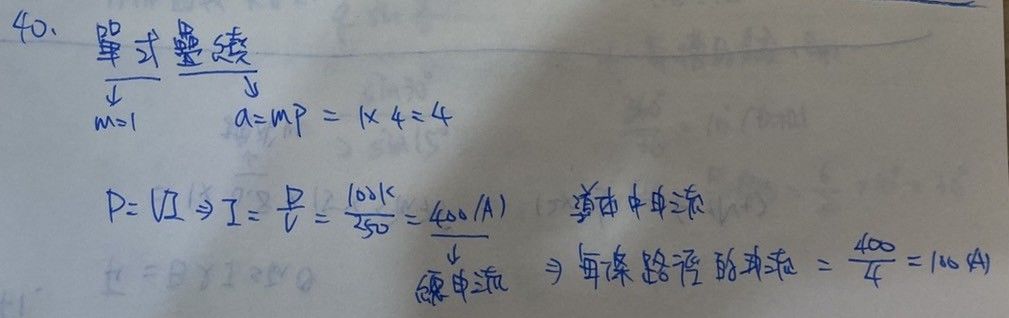 40. 單式疊繞
m=1 a=mP = 1×4=4
P=VI ⇒ I = P/V = 100K/250 = 400(A) 導体中电流
總电流 ⇒ 每條路徑的电流 = 400/4 = 100(A)